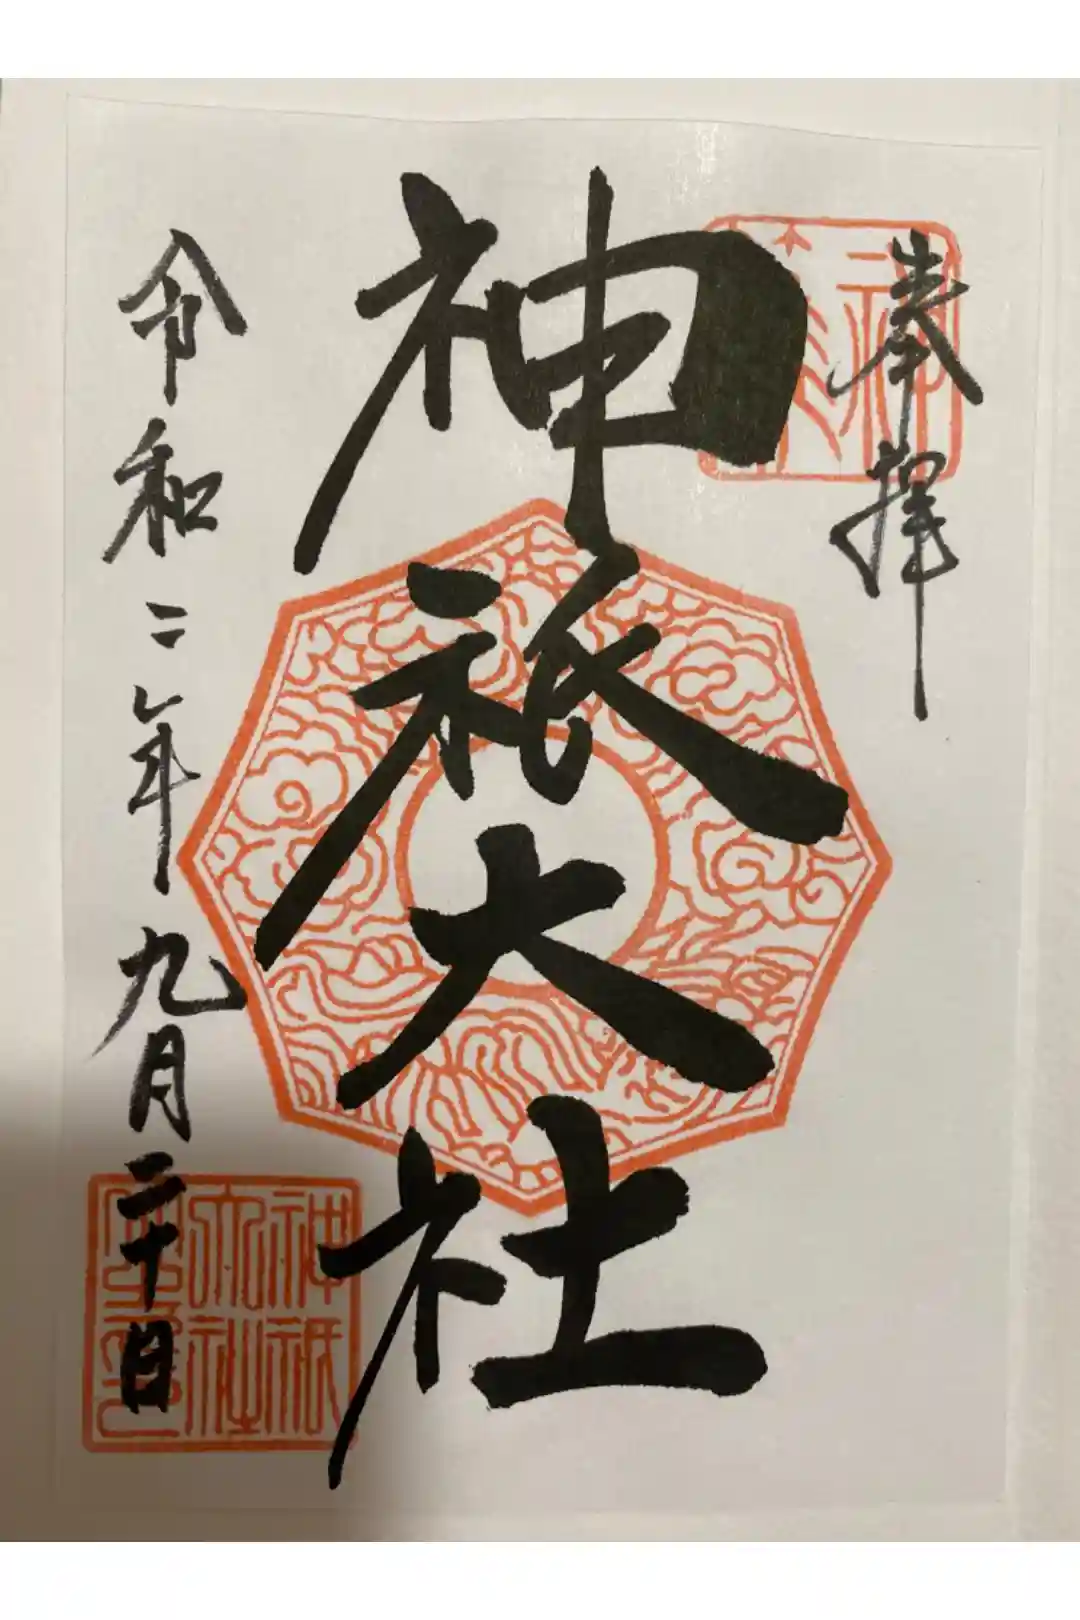 奉拝
神祇大社
令和二年九月二十日
神祇
大社